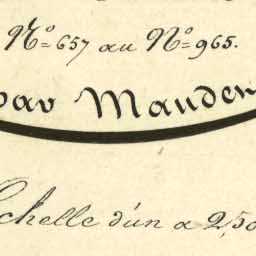 Nº 657 au Nº 965.
par Mauden
Echelle d'un a 2,50